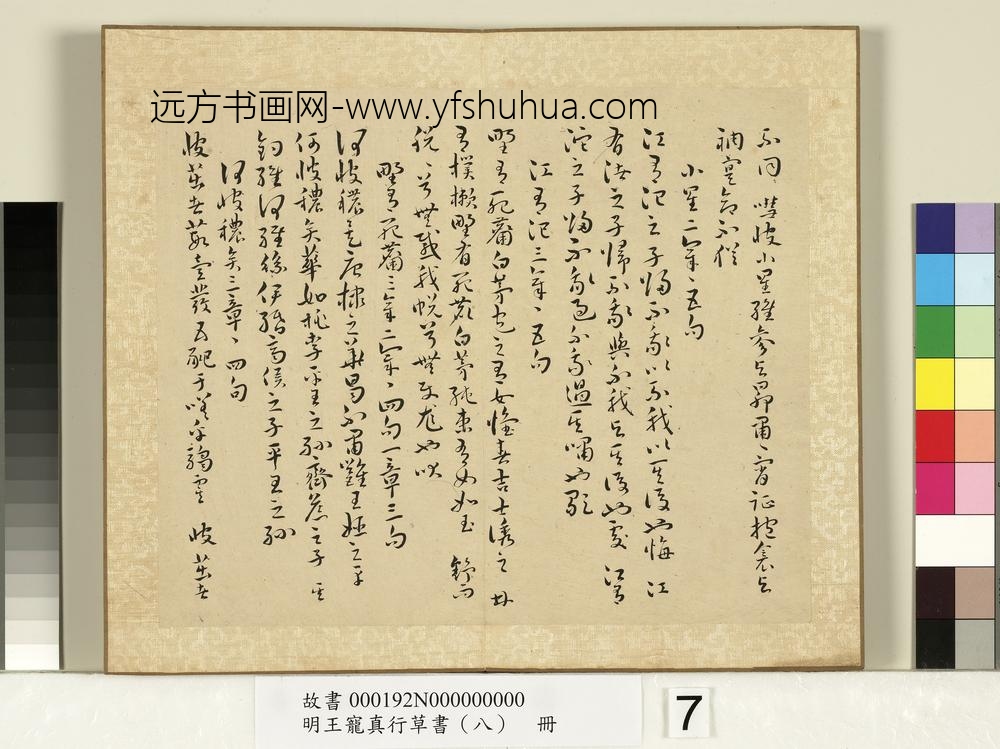 远方书画网-www.yfshuhua.com
不同 嘒彼小星維參與昴肅〻宵征抱衾與
裯寔命不猶
小星二章〻五句
江有汜之子歸不我以不我以其後也悔 江
有渚之子歸不我與不我與其後也處 江有
沱之子歸不我過不我過其嘯也歌
江有汜三章〻五句
野有死麕白茅包之有女懷春吉士誘之 林
有樸樕野有死鹿白茅純束有女如玉 舒而
脫〻兮無感我帨兮無使尨也吠
野有死麕三章二章〻四句一章三句
何彼穠矣唐棣之華曷不肅雝王姬之車
何彼穠矣華如桃李平王之孫齊侯之子 其
釣維何維絲伊緡齊侯之子平王之孫
何彼穠矣三章〻四句
彼茁者葭壹發五豝于嗟乎騶虞 彼茁者
故書 000192N000000000
明王寵真行草書（八） 冊
7